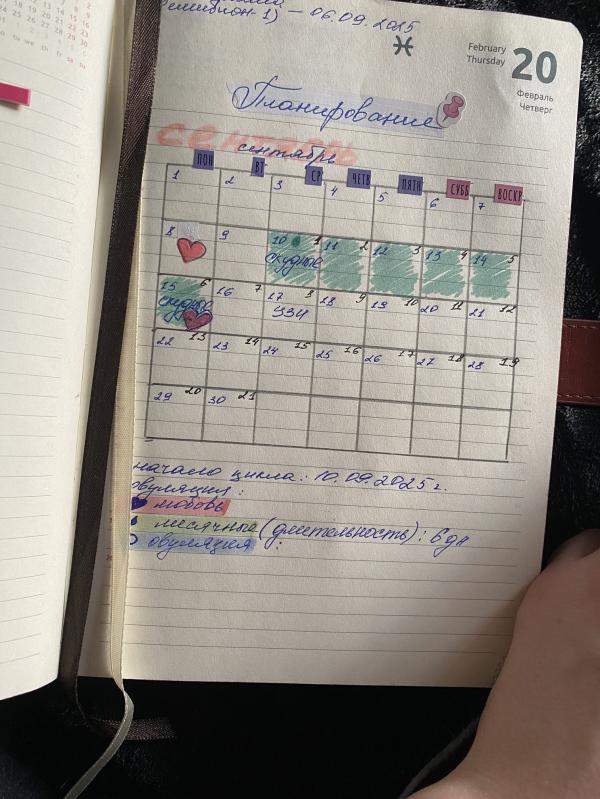 – 06.09.2025
February
Thursday
20
Февраль
Четверг
Планирование
сентябрь
сентябрь
ПОН ВТ СР ЧЕТВ ПЯТН СУББ ВОСКР
1 2 3 4 5 6 7
8 9 10 1 11 2 12 3 13 4 14 5
скудные
15 6 16 7 17 8 18 9 19 10 20 11 21 12
скудные УЗИ
22 13 23 14 24 15 25 16 26 17 27 18 28 19
29 20 30 21
начало цикла: 10.09.2025 г.
овуляция:
любовь
месячные (длительность): 6 дн
овуляция :